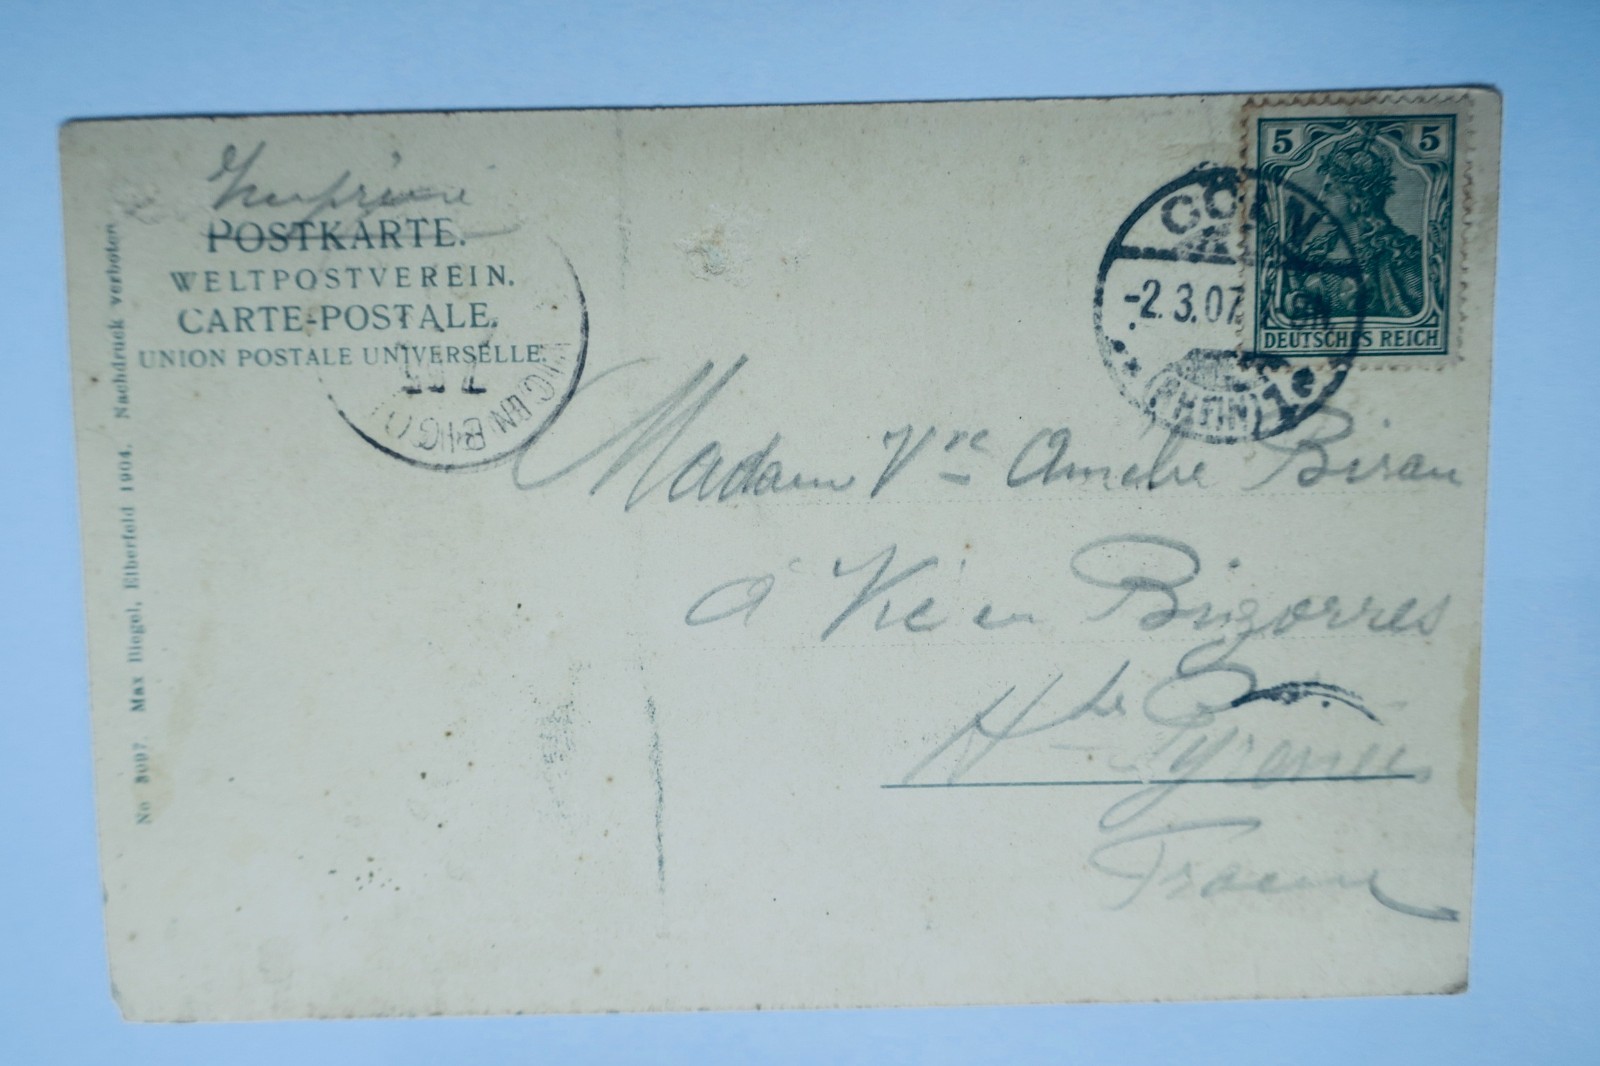 Imprimé
POSTKARTE.
WELTPOSTVEREIN.
CARTE-POSTALE.
UNION POSTALE UNIVERSELLE.
No 3097. Max Biegel, Elberfeld 1904. Nachdruck verboten
5 5
DEUTSCHES REICH
CÖLN
-2.3.07
(RHEIN) 1e
Madam Vve Biran
à Vic en Bigorres
Hte Pyrenées
France